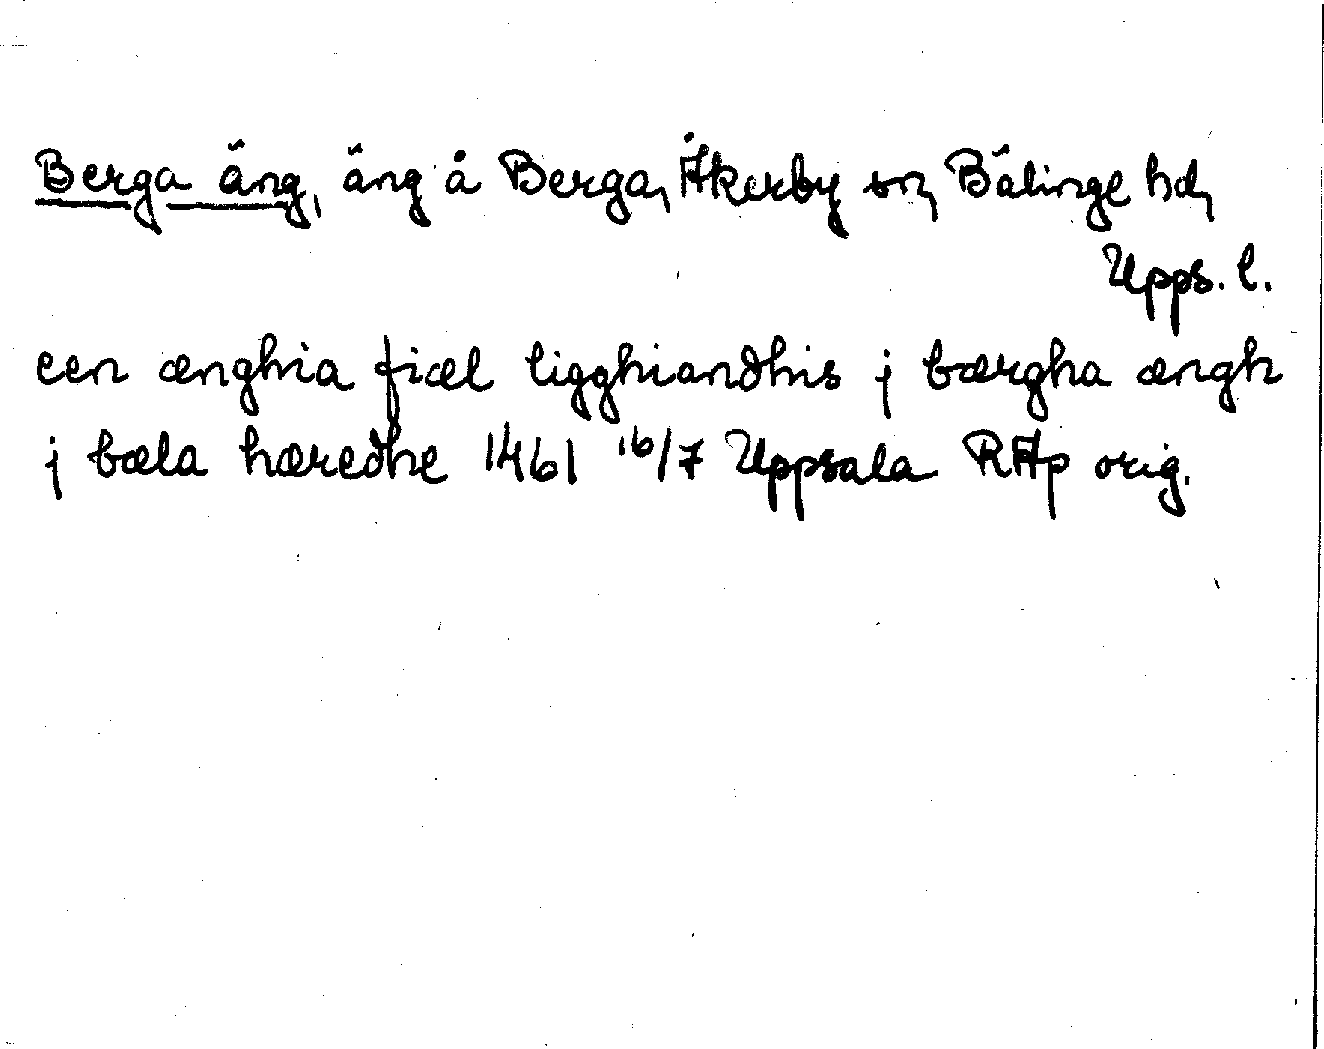 Berga äng, äng å Berga, Åkerby sn, Bälinge hd,
Upps. l.
een ænghia fiæl ligghiandhis j bærgha ængh
j bæla hæredhe 1461 16/7 Uppsala RAp orig.